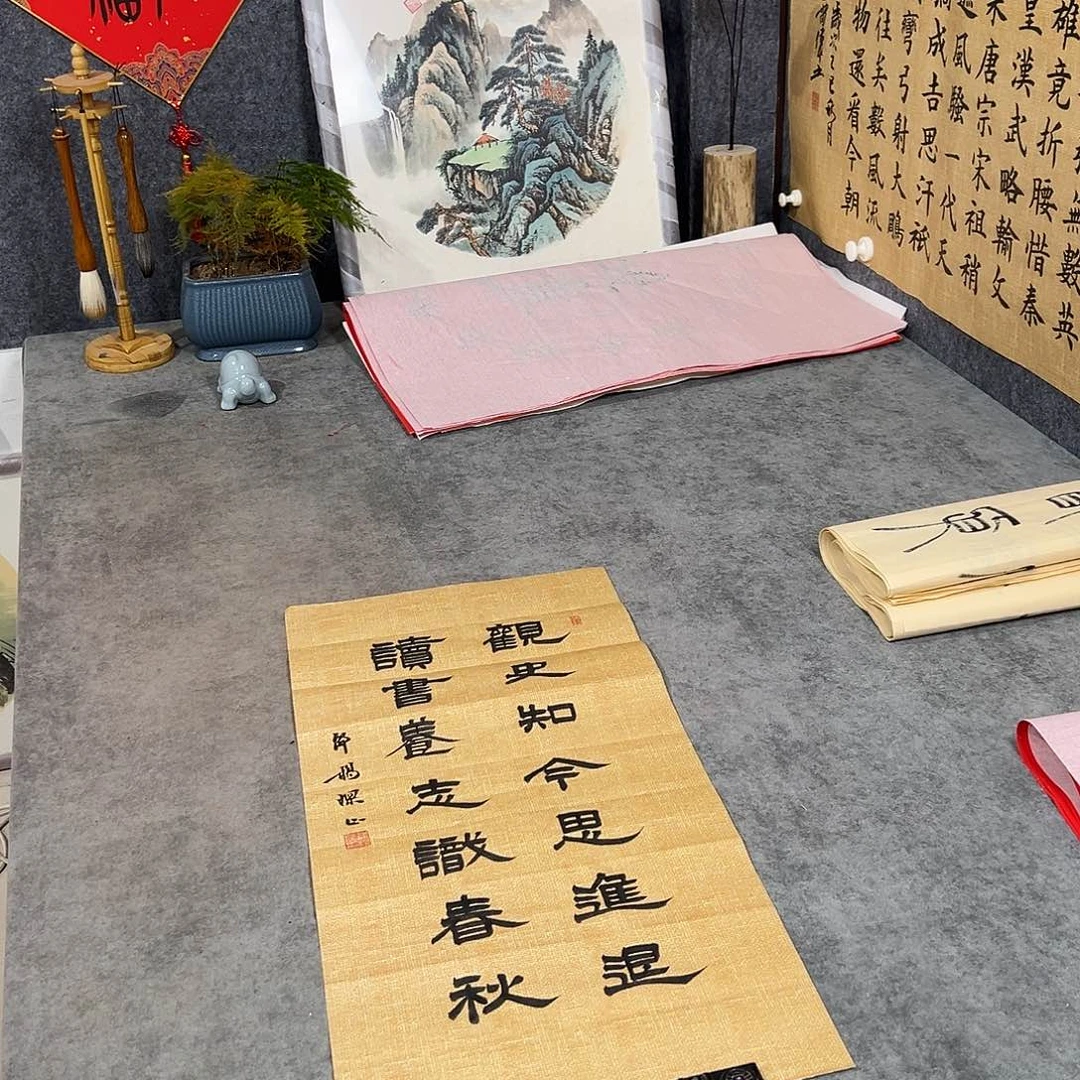 福
無數英
雄竟折腰惜秦
皇漢武略輸文
采唐宗宋祖稍
遜風騷一代天
驕成吉思汗祇
彎弓射大鵰
往矣數風流
物還看今朝
乙巳秋月
觀史知今思進退
讀書養志識春秋